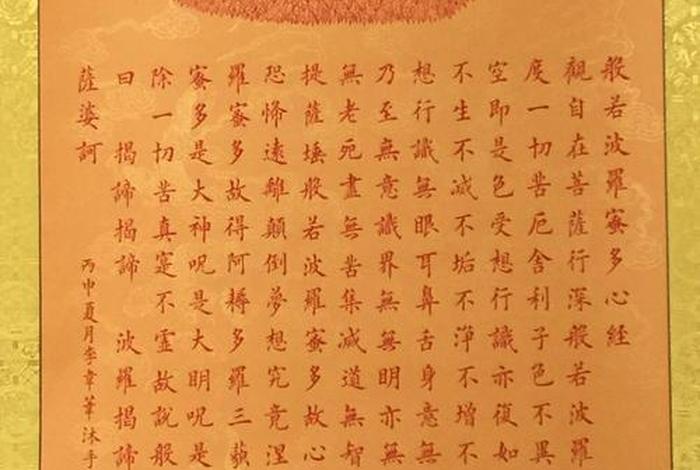 般若波羅蜜多心經
觀自在菩薩行深般若波羅
度一切苦厄舍利子色不異
空即是色受想行識亦復如
不生不減不垢不淨不增不
想行識無眼耳鼻舌身意無
乃至無意識界無無明亦無
無老死盡無苦集減道無智
提薩埵般若波羅蜜多故心
恐怖遠離顛倒夢想究竟涅
羅蜜多故得阿耨多羅三藐
蜜多是大神呪是大明呪是
除一切苦真寔不虛故說般
曰 揭諦揭諦 波羅揭諦
薩婆訶
丙申夏月李韋華沐手